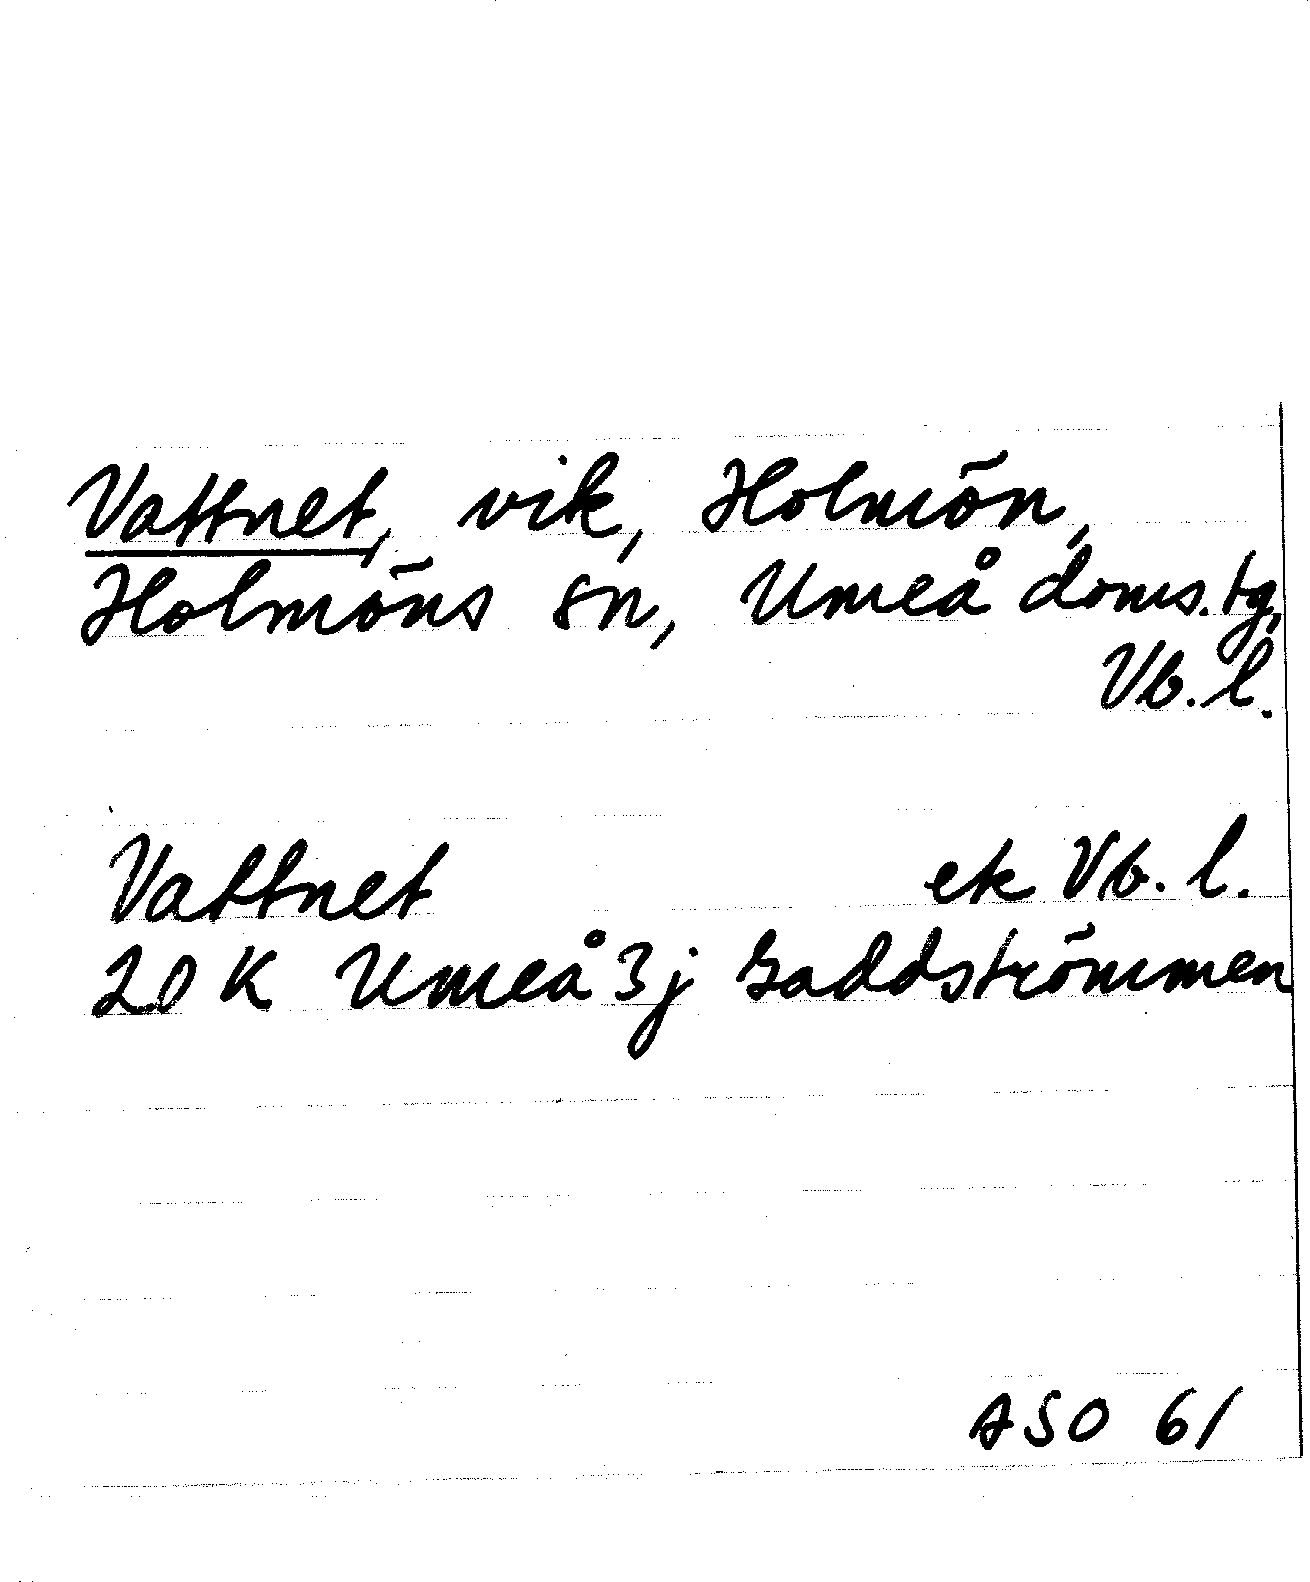 Vattnet, vik, Holmön,
Holmöns sn, Umeå doms.tg,
Vb.l.
Vattnet ek Vb.l.
20 K Umeå 3j Gaddströmmen
ASO 61